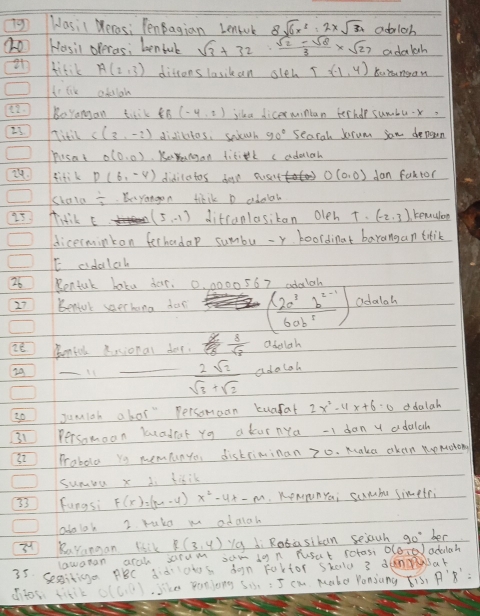 19 Hasil Operasi Pembagian bentuk 8√6x² : 2x√3x adalah
20 Hasil operasi bentuk √3 + 32 : (√2 - √8)/3 × √27 adalah
21 titik A(2,3) ditranslasikan oleh T (-1,4) bayangan
titik adalah
22. Bayangan titik B (-4,2) jika dicerminkan terhdp sumbu-x =
23 Titik C(3,-2) dirotasi sejauh 90° searah jarum jam dengan
Pusat O(0,0). Bayangan titik C adalah
24. titik D (6,-4) didilatasi dgn Pusat O(0,0) dan Faktor
skala. Bayangan titik D adalah
25 Titik E (5,-1) ditranslasikan Oleh T (-2,3) kemudian
dicerminkan terhadap sumbu -y koordinat bayangan titik
E adalah
26 Bentuk baku dari 0,0000567 adalah
27 Bentuk sederhana dar (2a³ b²⁻¹ / 6ab⁵) adalah
28 Bentuk Rasional dari 8/√3 adalah
29 — " — 2√2/(√3 + √2) adalah
30 Jumlah akar" Persamaan kuadrat 2x²-4x+6=0 adalah
31 Persamaan kuadrat yg akarnya -1 dan 4 adalah
32 Prabola yg mempunyai diskriminan > 0. Maka akan memotong
Sumbu x di titik
33 Fungsi F(x)=(m-4) x²-4x-m. Mempunyai sumbu simetri
adalah 2 maka m adalah
34 Bayangan titik F(3,4) yg di Rotasikan sejauh 90° ber
lawanan arah jarum jam dgn Pusat rotasi O(0,0) adalah
35. Segitiga ABC didilatasi dgn faktor skala 3 dan Pusat
titik O(0,0). Jika Panjang sisi = 5 cm Maka Panjang sisi A'B' =